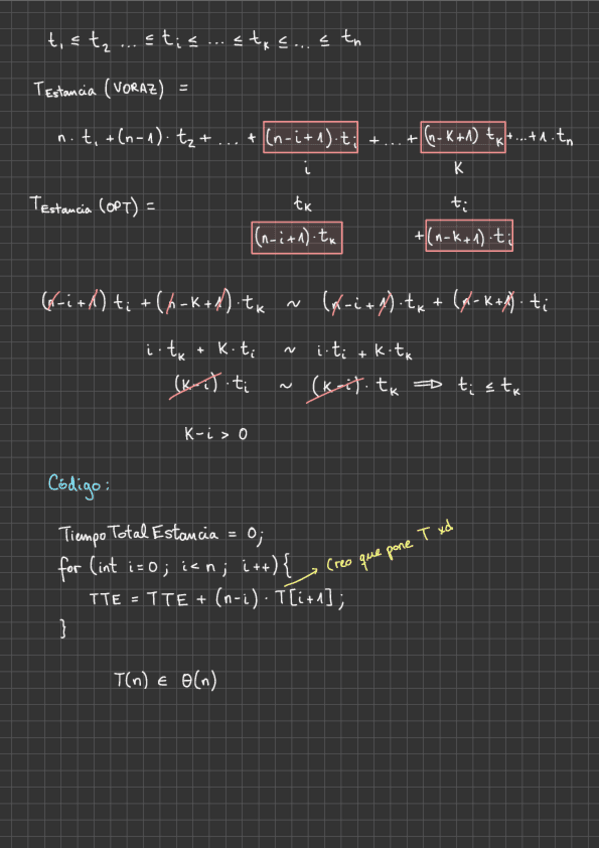 t₁ ≤ t₂ ... ≤ tᵢ ≤ ... ≤ tₖ ≤ ... ≤ tₙ
T Estancia (VORAZ) =
n · t₁ + (n-1) · t₂ + ... + (n-i+1) · tᵢ + ... + (n-K+1) tₖ + ... + 1 · tₙ
i K
T Estancia (OPT) = tₖ tᵢ
(n-i+1) · tₖ + (n-K+1) · tᵢ
(n-i+1) tᵢ + (n-K+1) · tₖ ~ (n-i+1) · tₖ + (n-K+1) · tᵢ
i · tₖ + K · tᵢ ~ i · tᵢ + K · tₖ
(K-i) · tᵢ ~ (K-i) · tₖ ⟹ tᵢ ≤ tₖ
K-i > 0
Código:
Tiempo Total Estancia = 0;
for (int i=0; i<n; i++){
Creo que pone T xd
TTE = TTE + (n-i) · T[i+1];
}
T(n) ∈ θ(n)